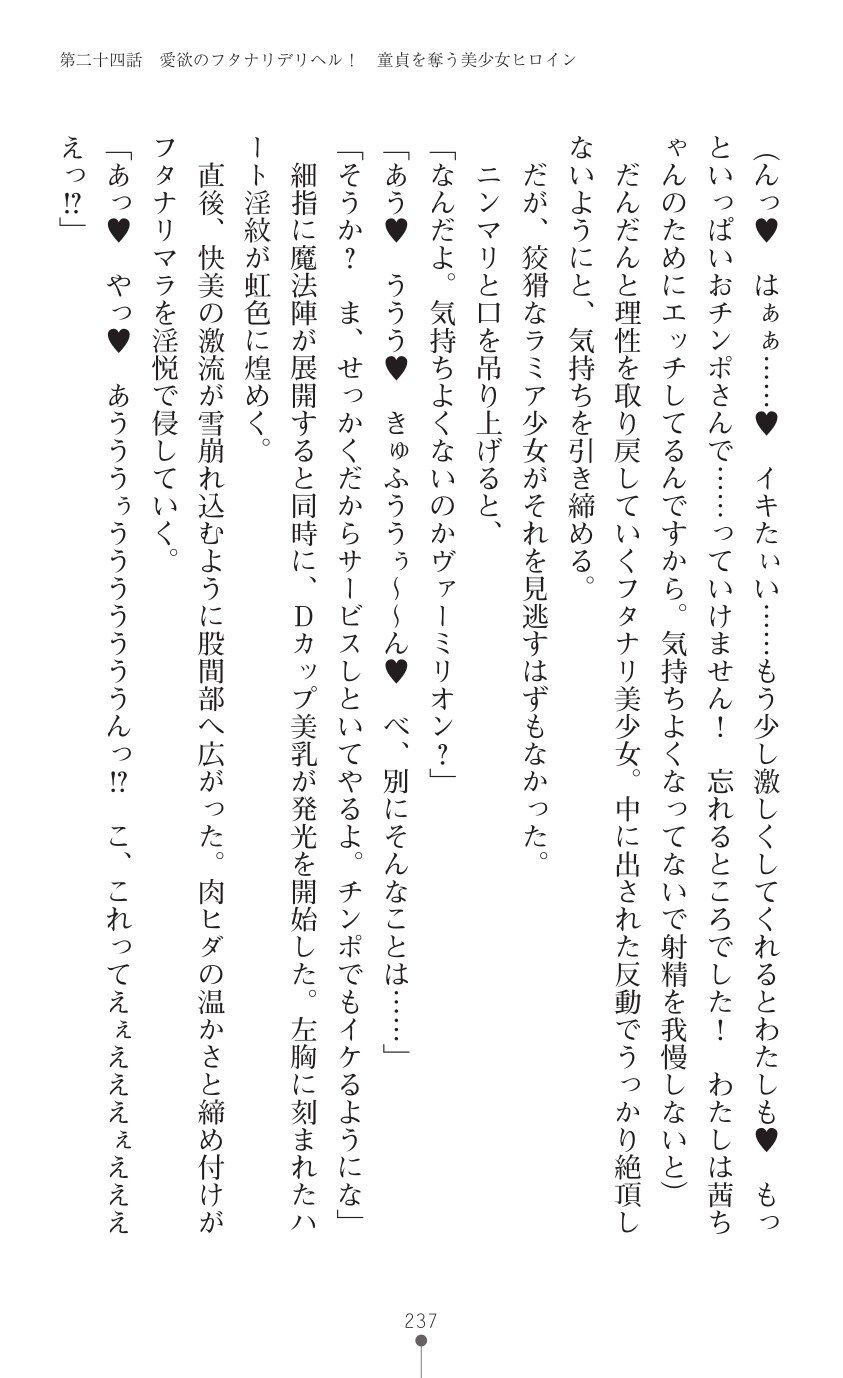 第二十四話　愛欲のフタナリデリヘル！　童貞を奪う美少女ヒロイン
(んっ♥　はぁぁ……♥　イキたぃい……もう少し激しくしてくれるとわたしも♥　もっ
といっぱいおチンポさんで……っていけません！　忘れるところでした！　わたしは茜ち
ゃんのためにエッチしてるんですから。気持ちよくなってないで射精を我慢しないと)
　だんだんと理性を取り戻していくフタナリ美少女。中に出された反動でうっかり絶頂し
ないようにと、気持ちを引き締める。
　だが、狡猾なラミア少女がそれを見逃すはずもなかった。
　ニンマリと口を吊り上げると、
「なんだよ。気持ちよくないのかヴァーミリオン？」
「あう♥　ううう♥　きゅふううぅ～～ん♥　べ、別にそんなことは……」
「そうか？　ま、せっかくだからサービスしといてやるよ。チンポでもイケるようにな」
　細指に魔法陣が展開すると同時に、Ｄカップ美乳が発光を開始した。左胸に刻まれたハ
ート淫紋が虹色に煌めく。
　直後、快美の激流が雪崩れ込むように股間部へ広がった。肉ヒダの温かさと締め付けが
フタナリマラを淫悦で侵していく。
「あっ♥　やっ♥　あうううぅうううううううんっ!?　こ、これってえぇえええぇえええ
えっ!?」
237